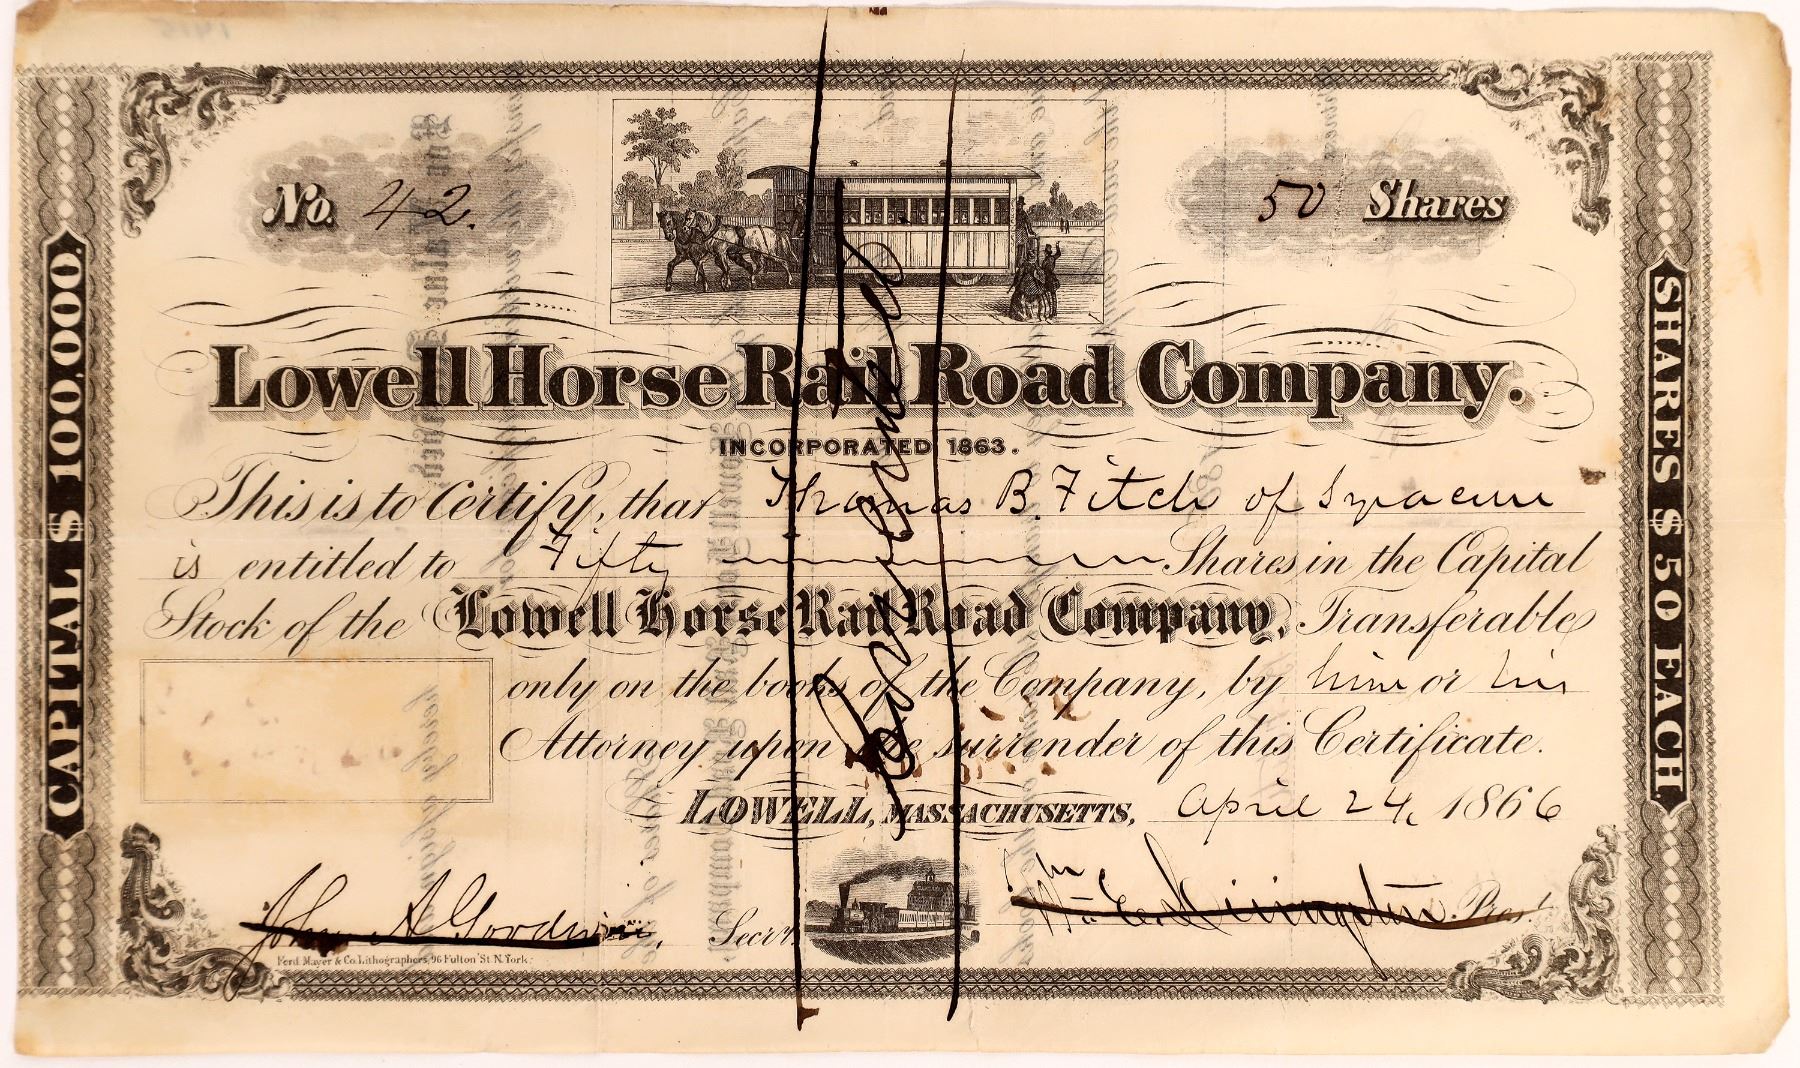 No. 42.
50 Shares
Lowell Horse Rail Road Company.
INCORPORATED 1863.
This is to Certify, that Thomas B. Fitch of Syracuse
is entitled to Fifty Shares in the Capital
Stock of the Lowell Horse Rail Road Company, Transferable
only on the books of the Company, by him or his
Attorney upon the surrender of this Certificate.
LOWELL, MASSACHUSETTS, April 24, 1866
John A Goodwin, Secry.
Wm E. Livingston. Prest
Ferd. Mayer & Co. Lithographers, 96 Fulton St. N. York.
CAPITAL $ 100.000.
SHARES $ 50 EACH.